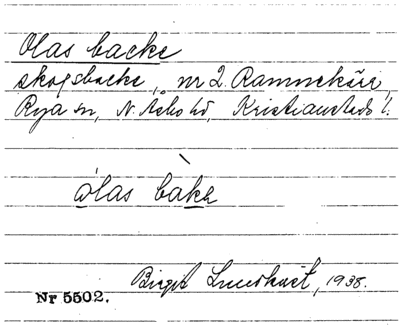 Olas backe
skogsbacke, nr 2 Ramnekärr,
Rya sn, N. Åsbo hd, Kristianstads l.
ólas bàkə
Birgit Lundkvist, 1938.
Nr 5502.